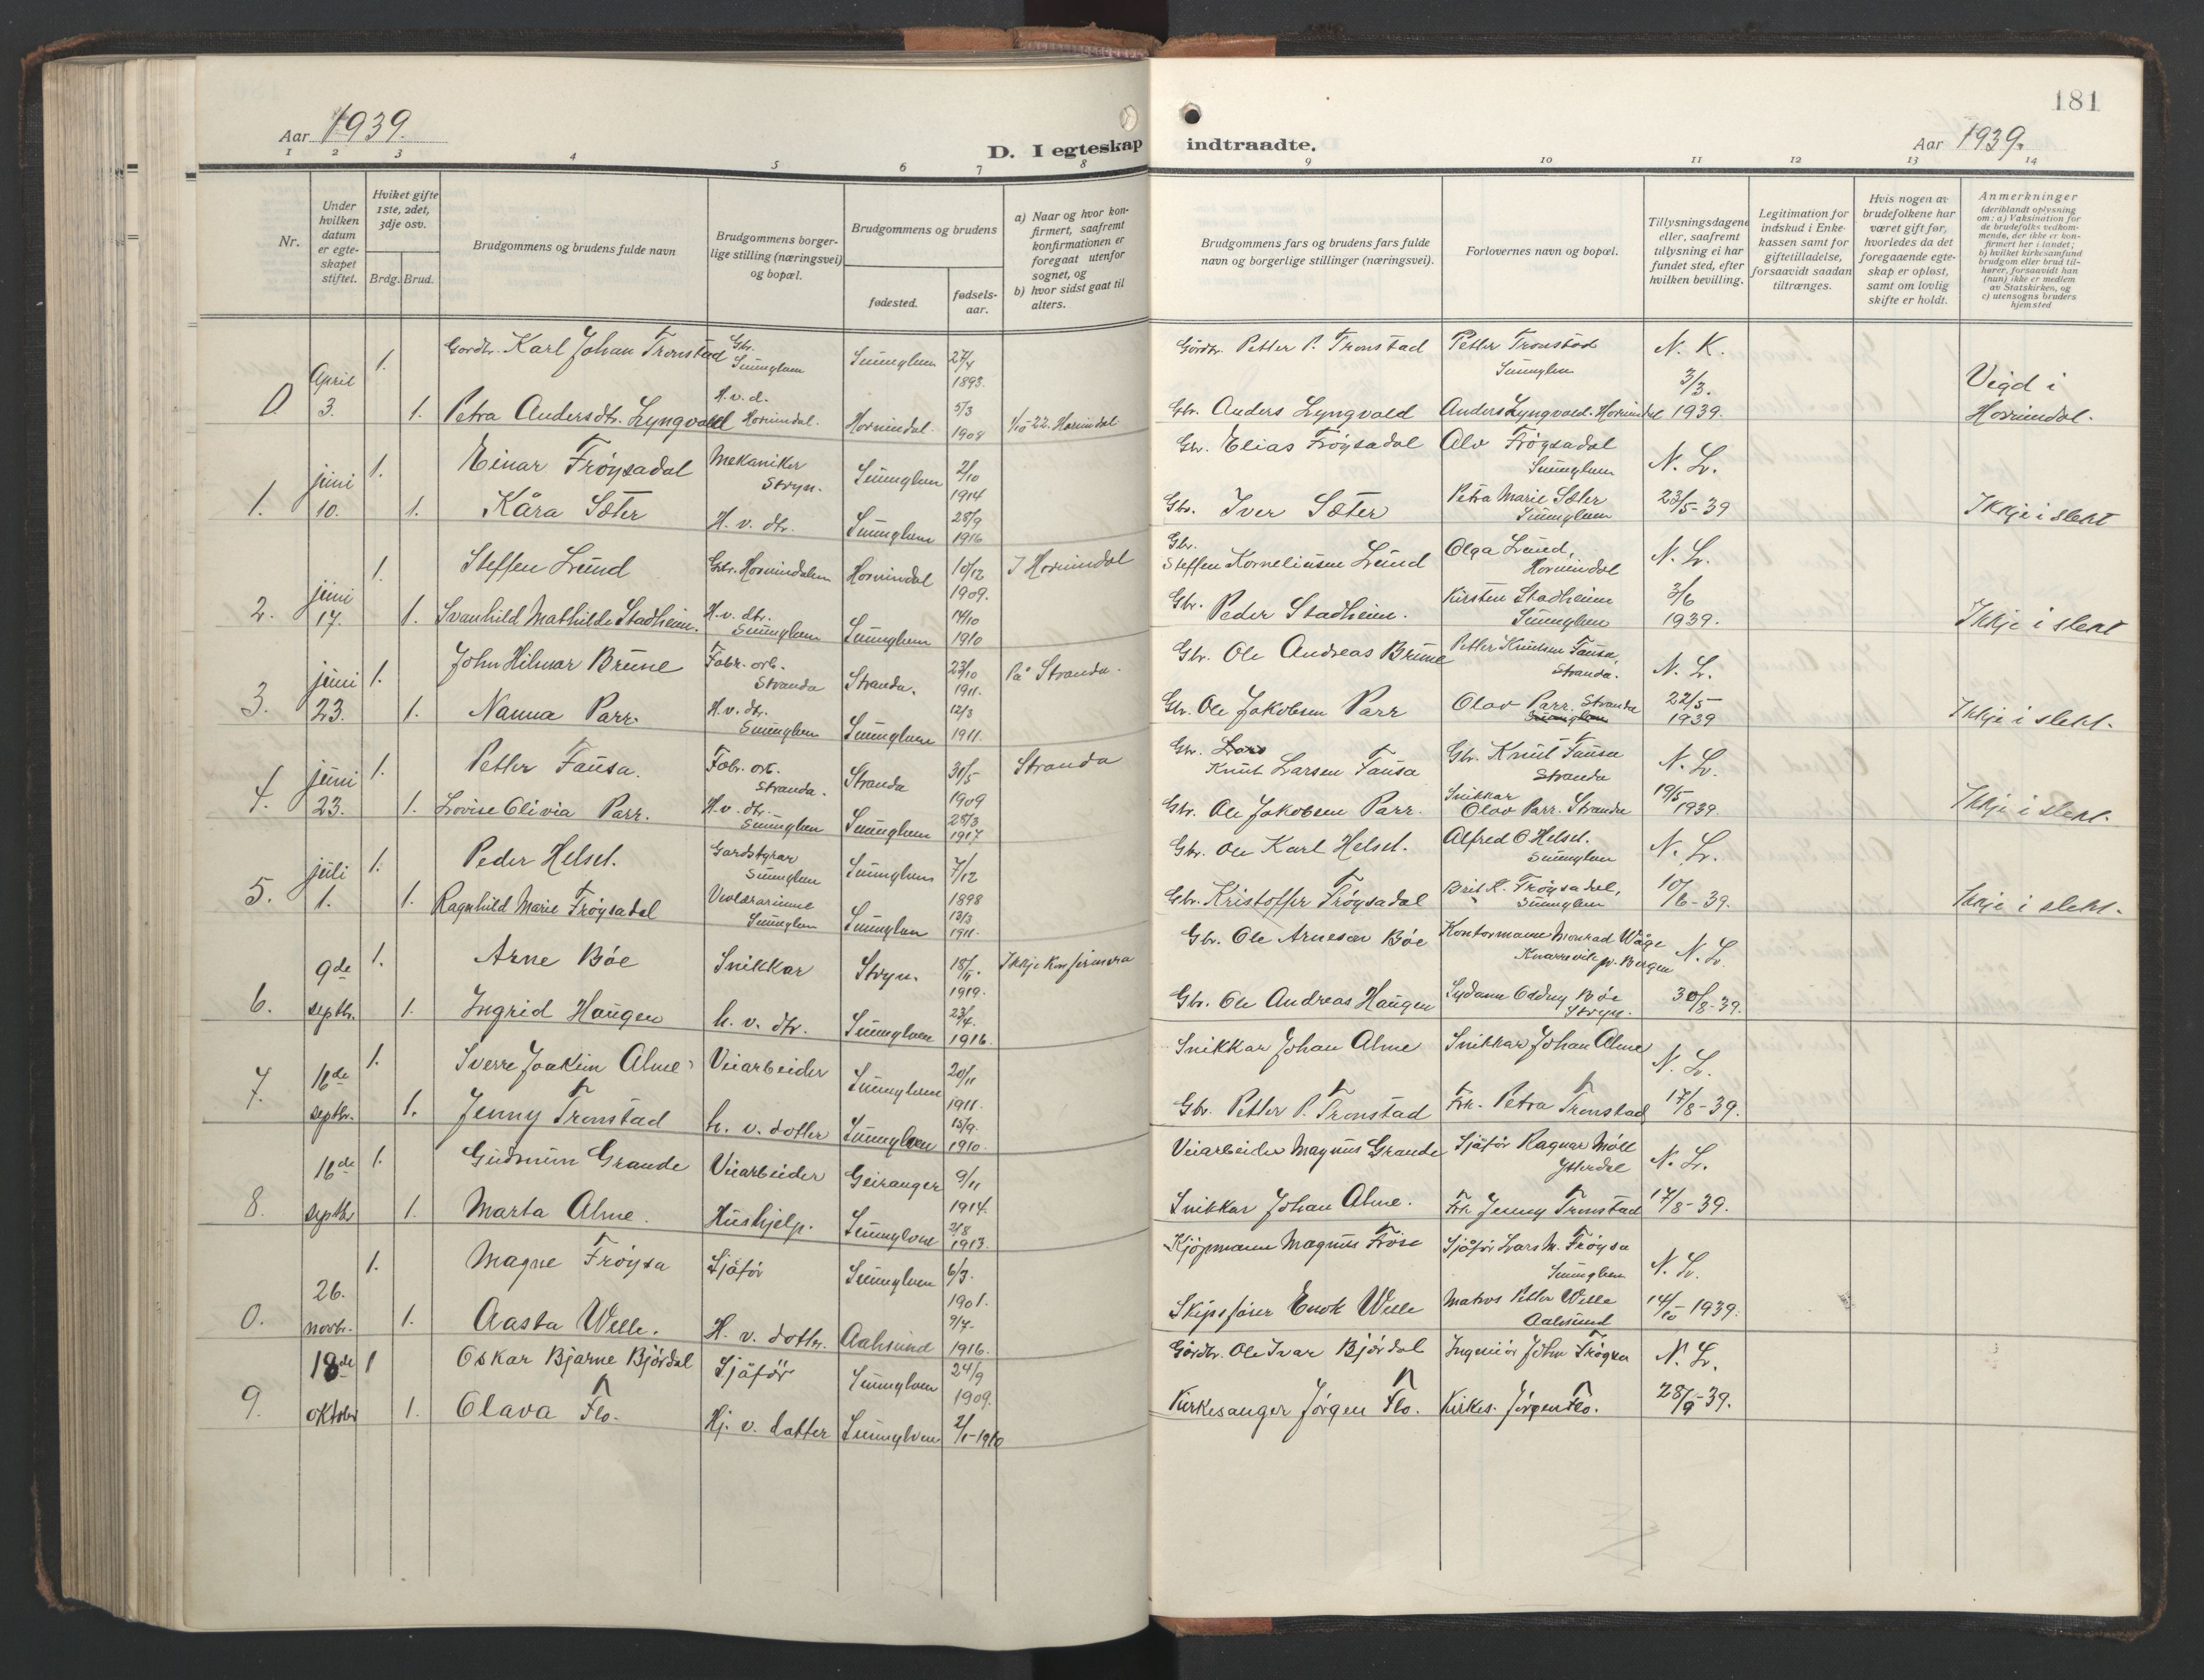 181
Aar 1939.
D. I egteskap indtraadte.
Aar 1939.
1 2 3 4 5 6 7 8 9 10 11 12 13 14
Nr.
Under hvilken datum er egteskapet stiftet.
Hviket gifte 1ste, 2det, 3dje osv.
Brdg. Brud.
Brudgommens og brudens fulde navn
Brudgommens borgerlige stilling (næringsvei) og bopæl.
Brudgommens og brudens
fødested.
fødselsaar.
a) Naar og hvor konfirmert, saafremt konfirmationen er foregaat utenfor sognet, og
b) hvor sidst gaat til alters.
Brudgommens fars og brudens fars fulde navn og borgerlige stillinger (næringsvei).
Forlovernes navn og bopæl.
Tillysningsdagene eller, saafremt tillysning ei har fundet sted, efter hvilken bevilling.
Legitimation for indskud i Enkekassen samt for giftetilladelse, forsaavidt saadan tiltrænges.
Hvis nogen av brudefolkene har været gift før, hvorledes da det foregaaende egteskap er opløst, samt om lovlig skifte er holdt.
Anmerkninger
(deriblandt oplysning om: a) Vaksination for de brudefolks vedkommende, der ikke er konfirmert her i landet; b) hvilket kirkesamfund brudgom eller brud tilhører, forsaavidt han (hun) ikke er medlem av Statskirken, og c) utensogns bruders hjemsted
1. Gardbr. Karl Johan Tronstad Gbr. Sunnylven Sunnylven 27/4 1893. Gardbr. Petter P. Tronstad Petter Tronstad Sunnylven N. K.
0 April 3. 1. Petra Andersdtr. Lyngvold H. v. d. Hornindal. Hornindal. 5/3 1908 1/10 22. Hornindal Gbr. Anders Lyngvold Anders Lyngvold. Hornindal 3/3. 1939. Vigd i Hornindal.
1. Einar Frøysadal Mekaniker Stryn. Sunnylven 2/10 1914 Gbr. Elias Frøysadal Alv Frøysadal Sunnylven N. L.
1. juni 10. 1. Kåra Sæter H. v. dtr. Sunnylven 28/9 1916 Gbr. Iver Sæter Petra Marie Sæter Sunnylven 23/5-39 Ikkje i slekt
1. Steffen Lund Gbr. Hornindalen Hornindal 10/12 1909. I Hornindal Gbr. Steffen Korneliusen Lund Olga Lund, Hornindal N. L.
2. juni 17. 1. Svanhild Mathilde Stadheim. H. v. dtr. Sunnylven Sunnylven 14/10 1910 Gbr. Peder Stadheim. Kirsten Stadheim Sunnylven 3/6 1939. Ikkje i slekt
1. John Hilmar Brune Fabr. arb. Stranda Stranda. 23/10 1911. På Stranda. Gbr. Ole Andreas Brune Petter Knutsen Fausa, Stranda. N. L.
3. juni 23. 1. Nanna Parr. H. v. dtr. Sunnylven Sunnylven 12/3 1911. Gbr. Ole Jakobsen Parr Olav Parr. Stranda Sunnylven 22/5 1939 Ikkje i slekt.
1. Petter Fausa. Fabr. arb. Stranda. Stranda 31/5 1909 Stranda Gbr. Lars Knut Larsen Fausa Gbr. Knut Fausa Stranda N. L.
4. juni 23. 1. Lovise Olivia Parr. H. v. dtr. Sunnylven Sunnylven 28/3 1917 Gbr. Ole Jakobsen Parr. Snikkar Olav Parr. Stranda 19/5 1939. Ikkje i slekt.
1. Peder Helset. Gardstyrar Sunnylven Sunnylven 7/12 1898 Gbr. Ole Karl Helset. Alfred O Helset. Sunnylven N. L.
5. juli 1. 1. Ragnhild Marie Frøysadal Vevlærarinne Sunnylven Sunnylven 13/3 1911. Gbr. Kristoffer Frøysadal Brit K. Frøysadal, Sunnylven 10/6-39. Ikkje i slekt.
1. Arne Bøe Snikkar Stryn. 18/11. 1919. Ikkje konfirmera Gbr. Ole Arnesen Bøe Kontormann Monrad Wåge Knarrevik pr. Bergen N. L.
6. 9de septbr. 1. Ingrid Haugen h. v. dtr. Sunnylven 23/4. 1916. Gbr. Ole Andreas Haugen Sydame Oddny Bøe Stryn. 30/8-39.
1. Sverre Joakim Alme Veiarbeider Sunnylven 20/11 1911. Snikkar Johan Alme Snikkar Johan Alme N. L.
7. 16de septbr. 1. Jenny Tronstad h. v. dotter Sunnylven 15/9. 1910. Gbr. Petter P. Tronstad Frk. Petra Tronstad 17/8-39.
1. Gudmun Grande Veiarbeider Geiranger 9/11 1914. Veiarbeider Magnus Grande Sjåfør Ragnar Møll Ytterdal N. L.
8. 16de septbr 1. Marta Alme. Hushjelp. Sunnylven 2/8 1913. Snikkar Johan Alme. Frk Jenny Tronstad 17/8-39.
1. Magne Frøysa Sjåfør Sunnylven 6/3. 1901. Kjøpmann Magnus Frøse Sjåfør Lars M. Frøysa Sunnylven N. L.
0. 26. novbr. 1. Aasta Welle. H. v. dotter. Aalesund 9/7. 1916. Skipsfører Enok Welle Matros Petter Welle Aalesund 14/10-1939.
18de 1 Oskar Bjarne Bjørdal Sjåfør Sunnylven 24/9 1909. Gårdbr. Ole Ivar Bjørdal Ingeniør John Frøysa N. L.
9. oktober 1. Olava Flo. Hj. v. datter Sunnylven 2/1-1910 Kirkesanger Jørgen Flo. Kirkes. Jørgen Flo. 28/9-39.